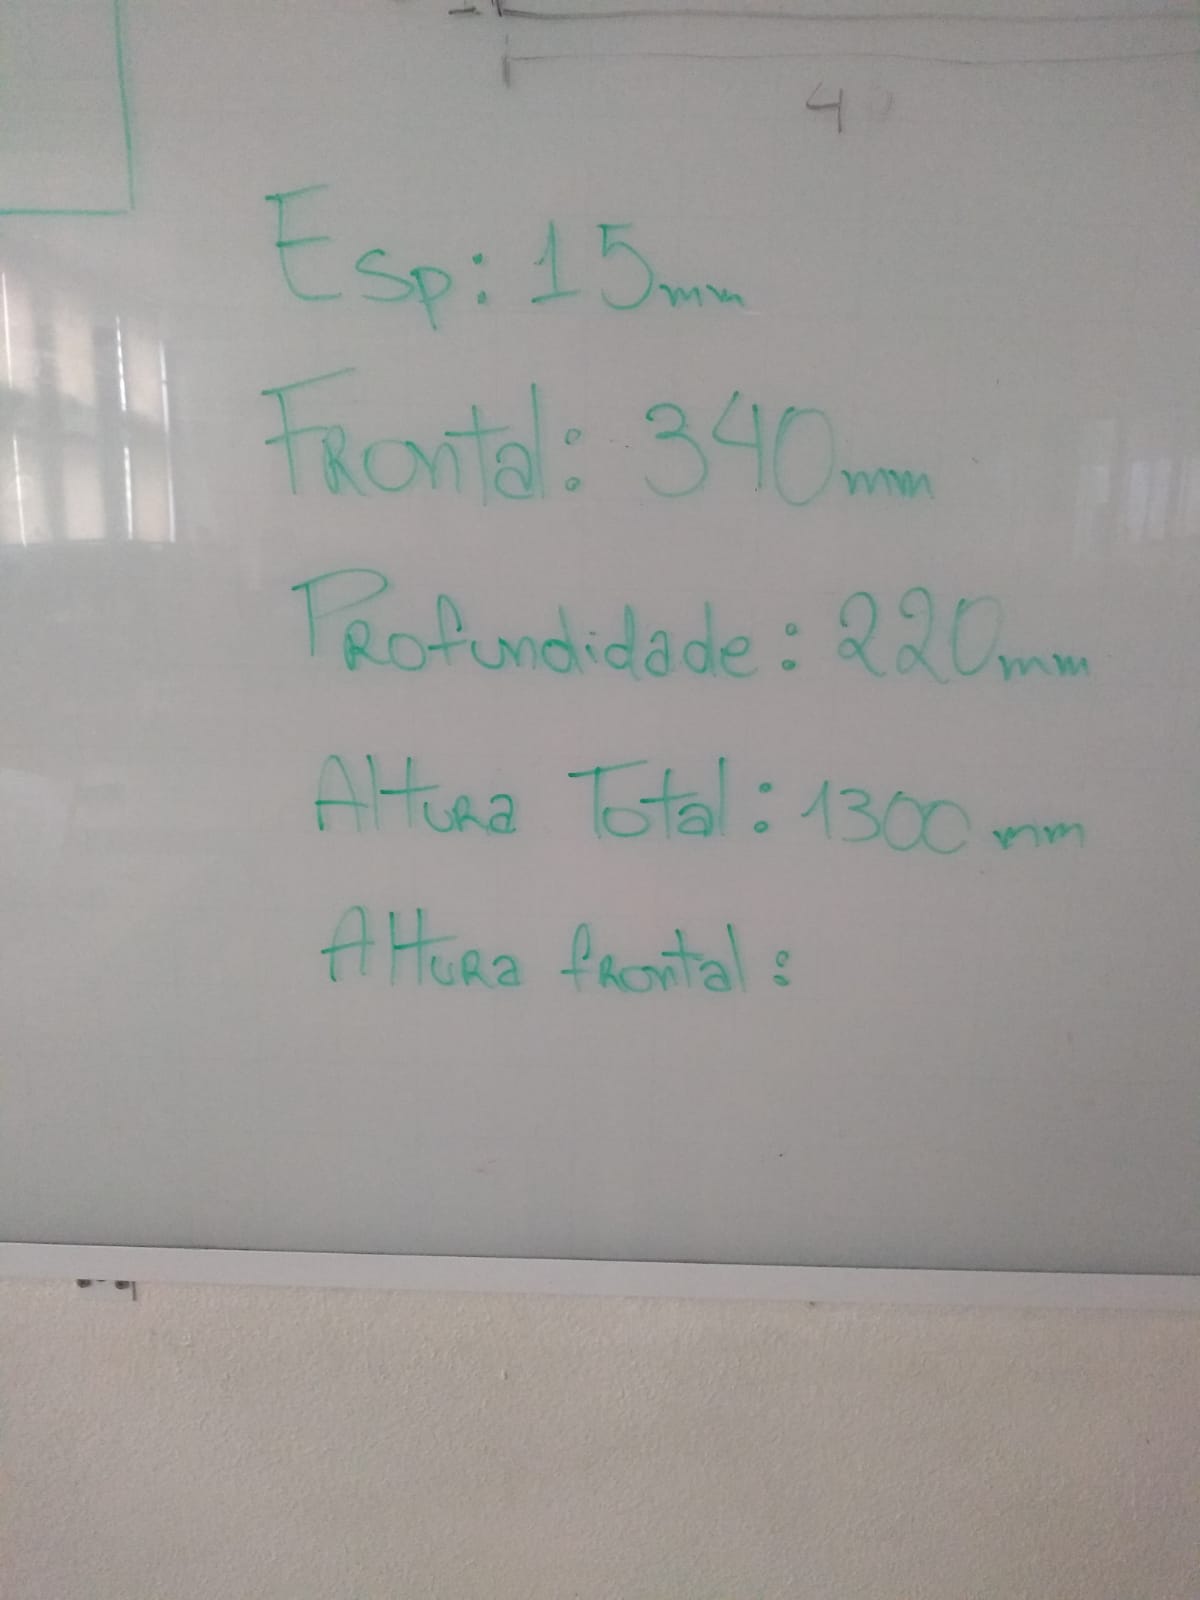 4
Esp: 15mm
Frontal: 340mm
Profundidade: 220mm
Altura Total: 1300 mm
Altura frontal: